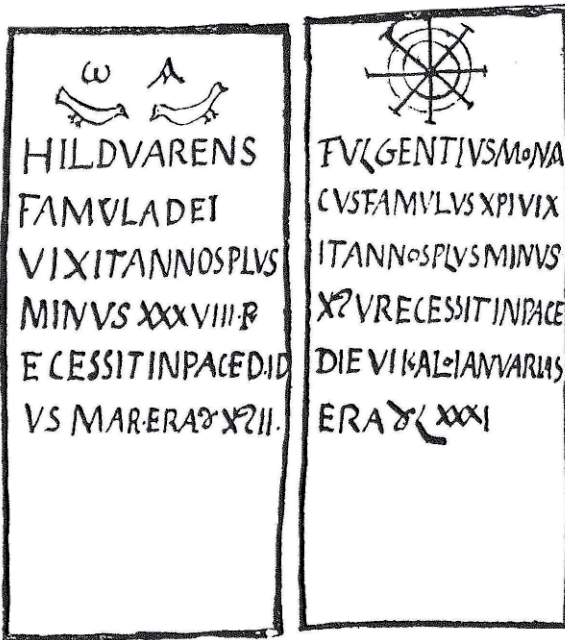 ω A
HILDVARENS
FAMVLA DEI
VIXIT ANNOS PLVS
MINVS XXXVIII·R
ECESSIT IN PACE D·ID
VS MAR·ERA
FVLGENTIVS MONA
CVS FAMVLVS XPI VIX
IT ANNOS PLVS MINVS
RECESSIT IN PACE
DIE VI KAL·IANVARIAS
ERA